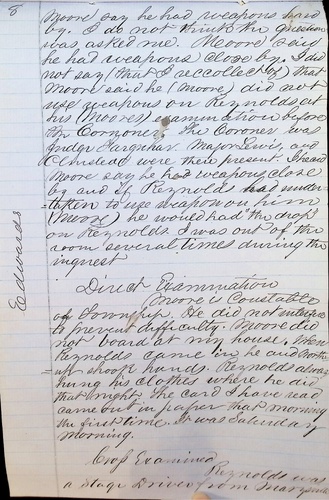 8
Moore say he had weapons hard
by. I do not think the question
was asked me. Moore said
he had weapons close by. I did
not say (that I reccollect of) that
Moore said he (Moore) did not
use weapons on Reynolds at
his (Moores) examination before
the Corroner. The Coroner was
Judge Farquhar. Major Lewis, and
Olmstead were their present. I heard
Moore say he had weapons close
by and if Reynolds had under
taken to use weapon on him
(Moore) he would had "the drop"
on Reynolds. I was out of the
room several times during the
inquest
Edwards
Direct Examination
Moore is Constable
of Township. He did not interfere
to prevent difficulty. Moore did
not board at my house. When
Reynolds came in he and
shook hands. Reynolds always
hung his clothes where he did
that night. The card I have read
came out in paper that morning
the first time. It was Saturday
Morning.
Cross Examined
Reynolds was
a Stage Driver from